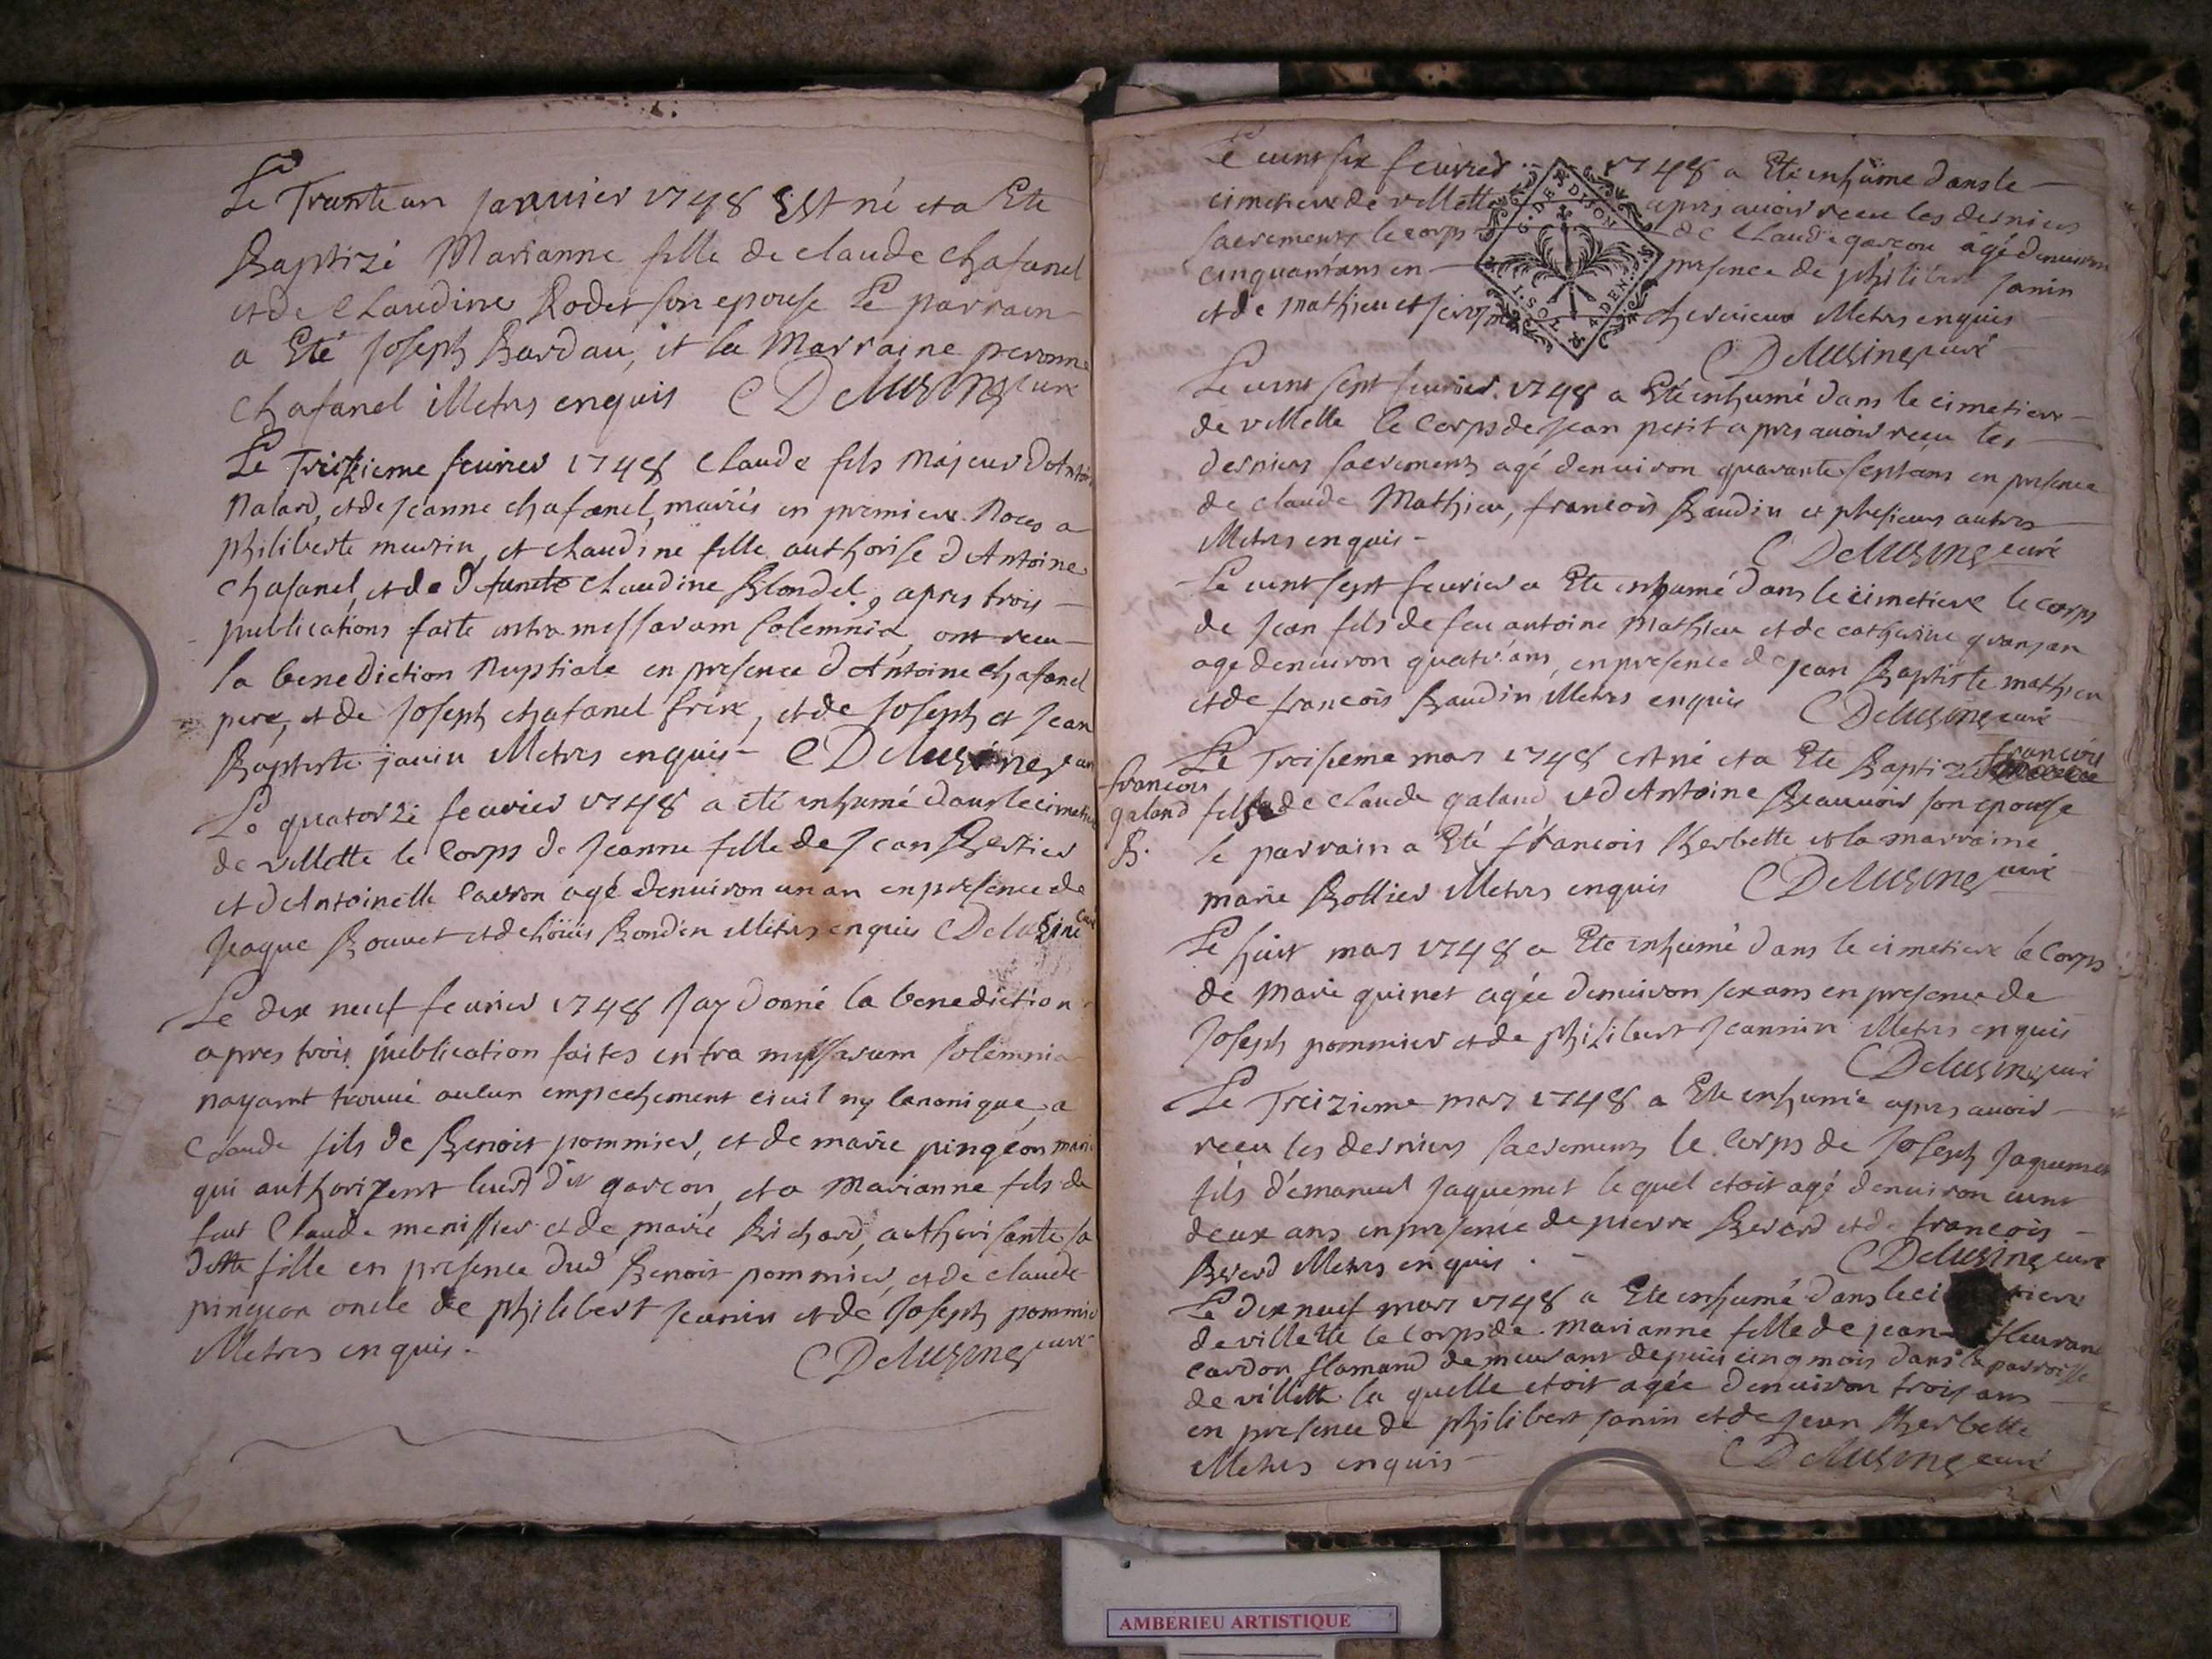 Le Trante un Janvier 1748 Est né et a Eté
Baptizé Marianne fille de claude Chafanel
et de Claudine Rodet son epouse Le parrain
a Eté Joseph Bardau, et la Marraine peronne
Chafanel illetrs enquis CDelusine curé
Le Treizieme feurier 1748 Claude fils Majeur d'Antoi
Nalard, et de jeanne chafanel, mariés en premiere Noces a
philiberte meurin, et claudine fille authorise d'Antoine
Chafanel, et de defuncte Claudine Blondel, apres trois
publications faite intra missarum solemnia, ont receu
la benediction Nuptiale en presence d'Antoine chafanel
pere, et de Joseph chafanel frere, et de Joseph et Jean
Baptiste janin illetrs enquis - CDelusine curé
Le quatorzi feurier 1748 a eté inhumé dans le cimetie
de villette le Corps de Jeanne fille de Jean Bertier
et d'Antoinette Carron agé denuiron un an en presence de
Jaque Bouvet et de Loüis Bondin illetrs enquis CDelusine curé
Le dix neuf feurier 1748 Jay donné la benediction
apres trois publication faites intra missarum solemnia
nayant trouué aucun empechement ciuil ny Canonique, a
Claude fils de Benoit pommier, et de marie pingeon marié
qui authorizent leurd dit garcon, et a Marianne fils de
feut Claude menissier et de marie Richard, authorisante sa
ditte fille en presence dud Benoit pommier, et de claude
pingeon oncle de philibert Jeanin et de Joseph pommie
illetrs enquis. CDelusine curé
Le uint six feurier 1748 a Eté inhumé dans le
cimetiere de villette apres auoir receu les derniers
sacrements le corps de Claude garcon agé denuiron
cinquant'ans en presence de philibert Janin
et de Mathieu et cheruieux illetrs enquis
G. DE DIJON
DEN.
CDelusine curé
Le uint sept feurier 1748 a Eté inhumé dans le cimetiere
de villette le Corps de Jean petit apres auoir receu les
derniers sacrements agé denuiron quarante sept ans en presence
de claude Mathieu, francois Baudin et plusieurs autres
illetrs enquis - CDelusine curé
Le uint sept feurier a Eté inhumé dans le cimetiere le corps
de Jean fils de feu antoine Mathieu et de catherine granjan
agé denuiron quatr'ans, en presence de jean Baptiste mathieu
et de francois Baudin illetrs enquis CDelusine curé
Le Troisieme mars 1748 est né et a Eté Baptizé francois
francois
galand
B.
fils de claude galand et d'Antoine Beauuoir son epouse
le parrain a Eté francois Berbette et la marraine
marie Bollier illetrs enquis CDelusine curé
Le huit mars 1748 a Eté inhumé dans le cimetiere le Corps
de Marie guinet agée denuiron six ans en presence de
Joseph pommier et de philibert Jeannin illetrs enquis
CDelusine curé
Le Treizieme mars 1748 a Eté inhumé apres auoir
receu les derniers sacrements le Corps de Joseph Jaquemet
fils d'emanuel Jaquemet le quel etoit agé denuiron uint
deux ans en presence de pierre Berard et de francois
Berard illetrs enquis. CDelusine curé
Le dix neuf mars 1748 a Eté inhumé dans le ci tiere
de villette le Corps de marianne fille de jean fleurant
cardon flamand demeurant depuis cinq mois dans la parroisse
de villette la quelle etoit agée denuiron trois ans
en presence de philibert Janin et de Jean Berbette
illetrs enquis CDelusine curé
AMBERIEU ARTISTIQUE